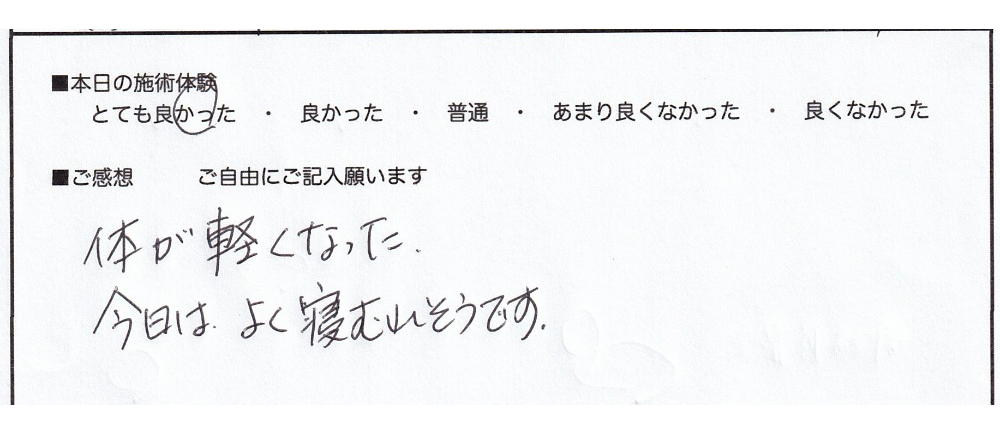 ■本日の施術体験
とても良かった ・ 良かった ・ 普通 ・ あまり良くなかった ・ 良くなかった
■ご感想 ご自由にご記入願います
体が軽くなった.
今日は.よく寝むれそうです.